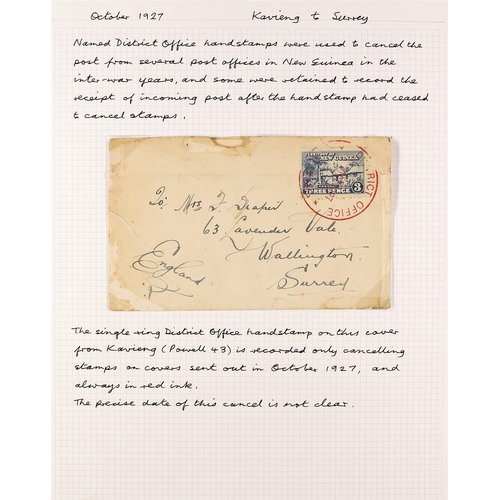 October 1927 Kavieng to Surrey
Named District Office handstamps were used to cancel the
post from several post offices in New Guinea in the
inter-war years, and some were retained to record the
receipt of incoming post after the handstamp had ceased
to cancel stamps.
TERRITORY OF
NEW GUINEA
THREE PENCE 3
RICT OFFICE
To: Mrs F. Draper
63 Lavender Vale.
Wallington.
Surrey
England.
The single ring District Office handstamp on this cover
from Kavieng (Powell 43) is recorded only cancelling
stamps on covers sent out in October 1927, and
always in red ink.
The precise date of this cancel is not clear.